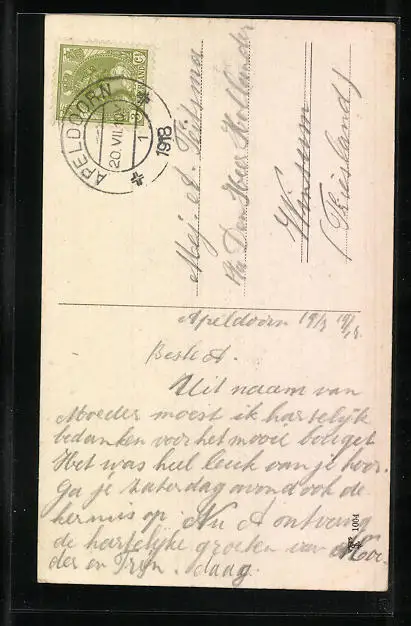 APELDOORN
20.VII.
1918
1
Mej. A. Feitsma
p/a Den Heer Hollander
Winsum
(Friesland)
Apeldoorn 19/7 1918
Beste A.
Uit naam van
Moeder moest ik hartelijk
bedanken voor het mooie bouget
Het was heel leuk van je hoor.
Ga je zaterdag avond ook de
kermis op. Nu A ontvang
de hartelijke groeten van Moe-
der en Trijn. daag.
1004